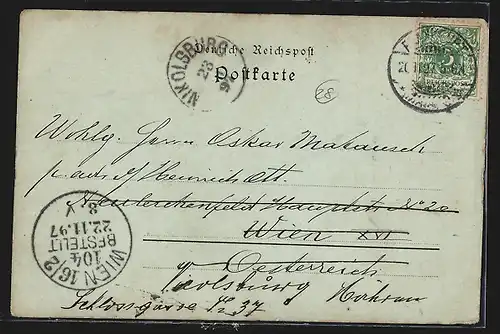 Deutsche Reichspost
Postkarte
NIKOLSBURG
23
97
28
5
Wohlg. Herrn Oskar Matausch
p. adr. Heinrich Ott
Neulerchenfeld Hauptstr. No 20
Wien XVI
Oesterreich
Nikolsburg Mähren
Schlossgasse No 37
WIEN 16/2
10¼
BESTELLT
22.11.97
8 V